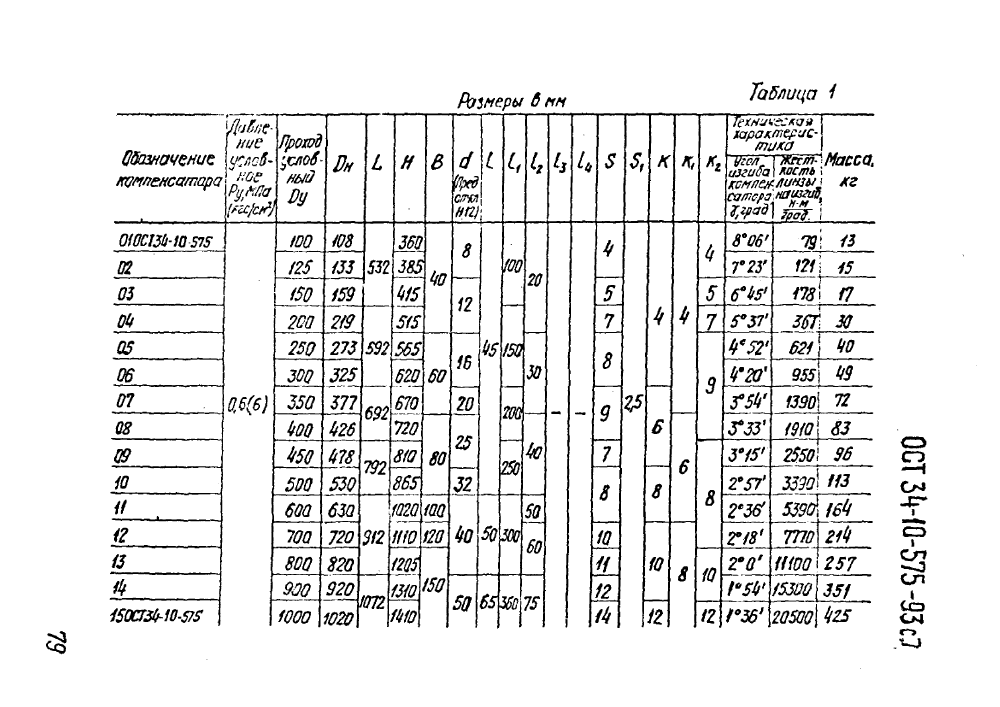 Размеры в мм
Таблица 1
Обозначение компенсатора | Давление условное Ру, МПа (кгс/см²) | Проход условный Dу | Dн | L | H | B | d (Пред. откл. H12) | l | l₁ | l₂ | l₃ | l₄ | S | S₁ | K | K₁ | K₂ | Техническая характеристика: Угол изгиба компенсатора γ, град | Жесткость линзы на изгиб, Н·м/град. | Масса, кг
01ОСТ34-10-575 | 0,6(6) | 100 | 108 | 532 | 360 | 40 | 8 | 45 | 100 | 20 | – | – | 4 | 2,5 | 4 | 4 | 4 | 8°06' | 79 | 13
02 | 125 | 133 | 385 | 7°23' | 121 | 15
03 | 150 | 159 | 415 | 12 | 5 | 5 | 6°45' | 178 | 17
04 | 200 | 219 | 592 | 515 | 150 | 7 | 7 | 5°37' | 367 | 30
05 | 250 | 273 | 565 | 60 | 16 | 30 | 8 | 9 | 4°52' | 621 | 40
06 | 300 | 325 | 620 | 4°20' | 955 | 49
07 | 350 | 377 | 692 | 670 | 20 | 200 | 9 | 6 | 3°54' | 1390 | 72
08 | 400 | 426 | 720 | 80 | 25 | 40 | 6 | 3°33' | 1910 | 83
09 | 450 | 478 | 792 | 810 | 250 | 7 | 8 | 3°15' | 2550 | 96
10 | 500 | 530 | 865 | 32 | 8 | 8 | 2°57' | 3390 | 113
11 | 600 | 630 | 912 | 1020 | 100 | 40 | 50 | 300 | 50 | 2°36' | 5390 | 164
12 | 700 | 720 | 1110 | 120 | 60 | 10 | 10 | 8 | 2°18' | 7770 | 214
13 | 800 | 820 | 1205 | 150 | 11 | 10 | 2°0' | 11100 | 257
14 | 900 | 920 | 1072 | 1310 | 50 | 65 | 360 | 75 | 12 | 1°54' | 15300 | 351
15ОСТ34-10-575 | 1000 | 1020 | 1410 | 14 | 12 | 12 | 1°36' | 20500 | 425
ОСТ 34-10-575-93 с.7
79